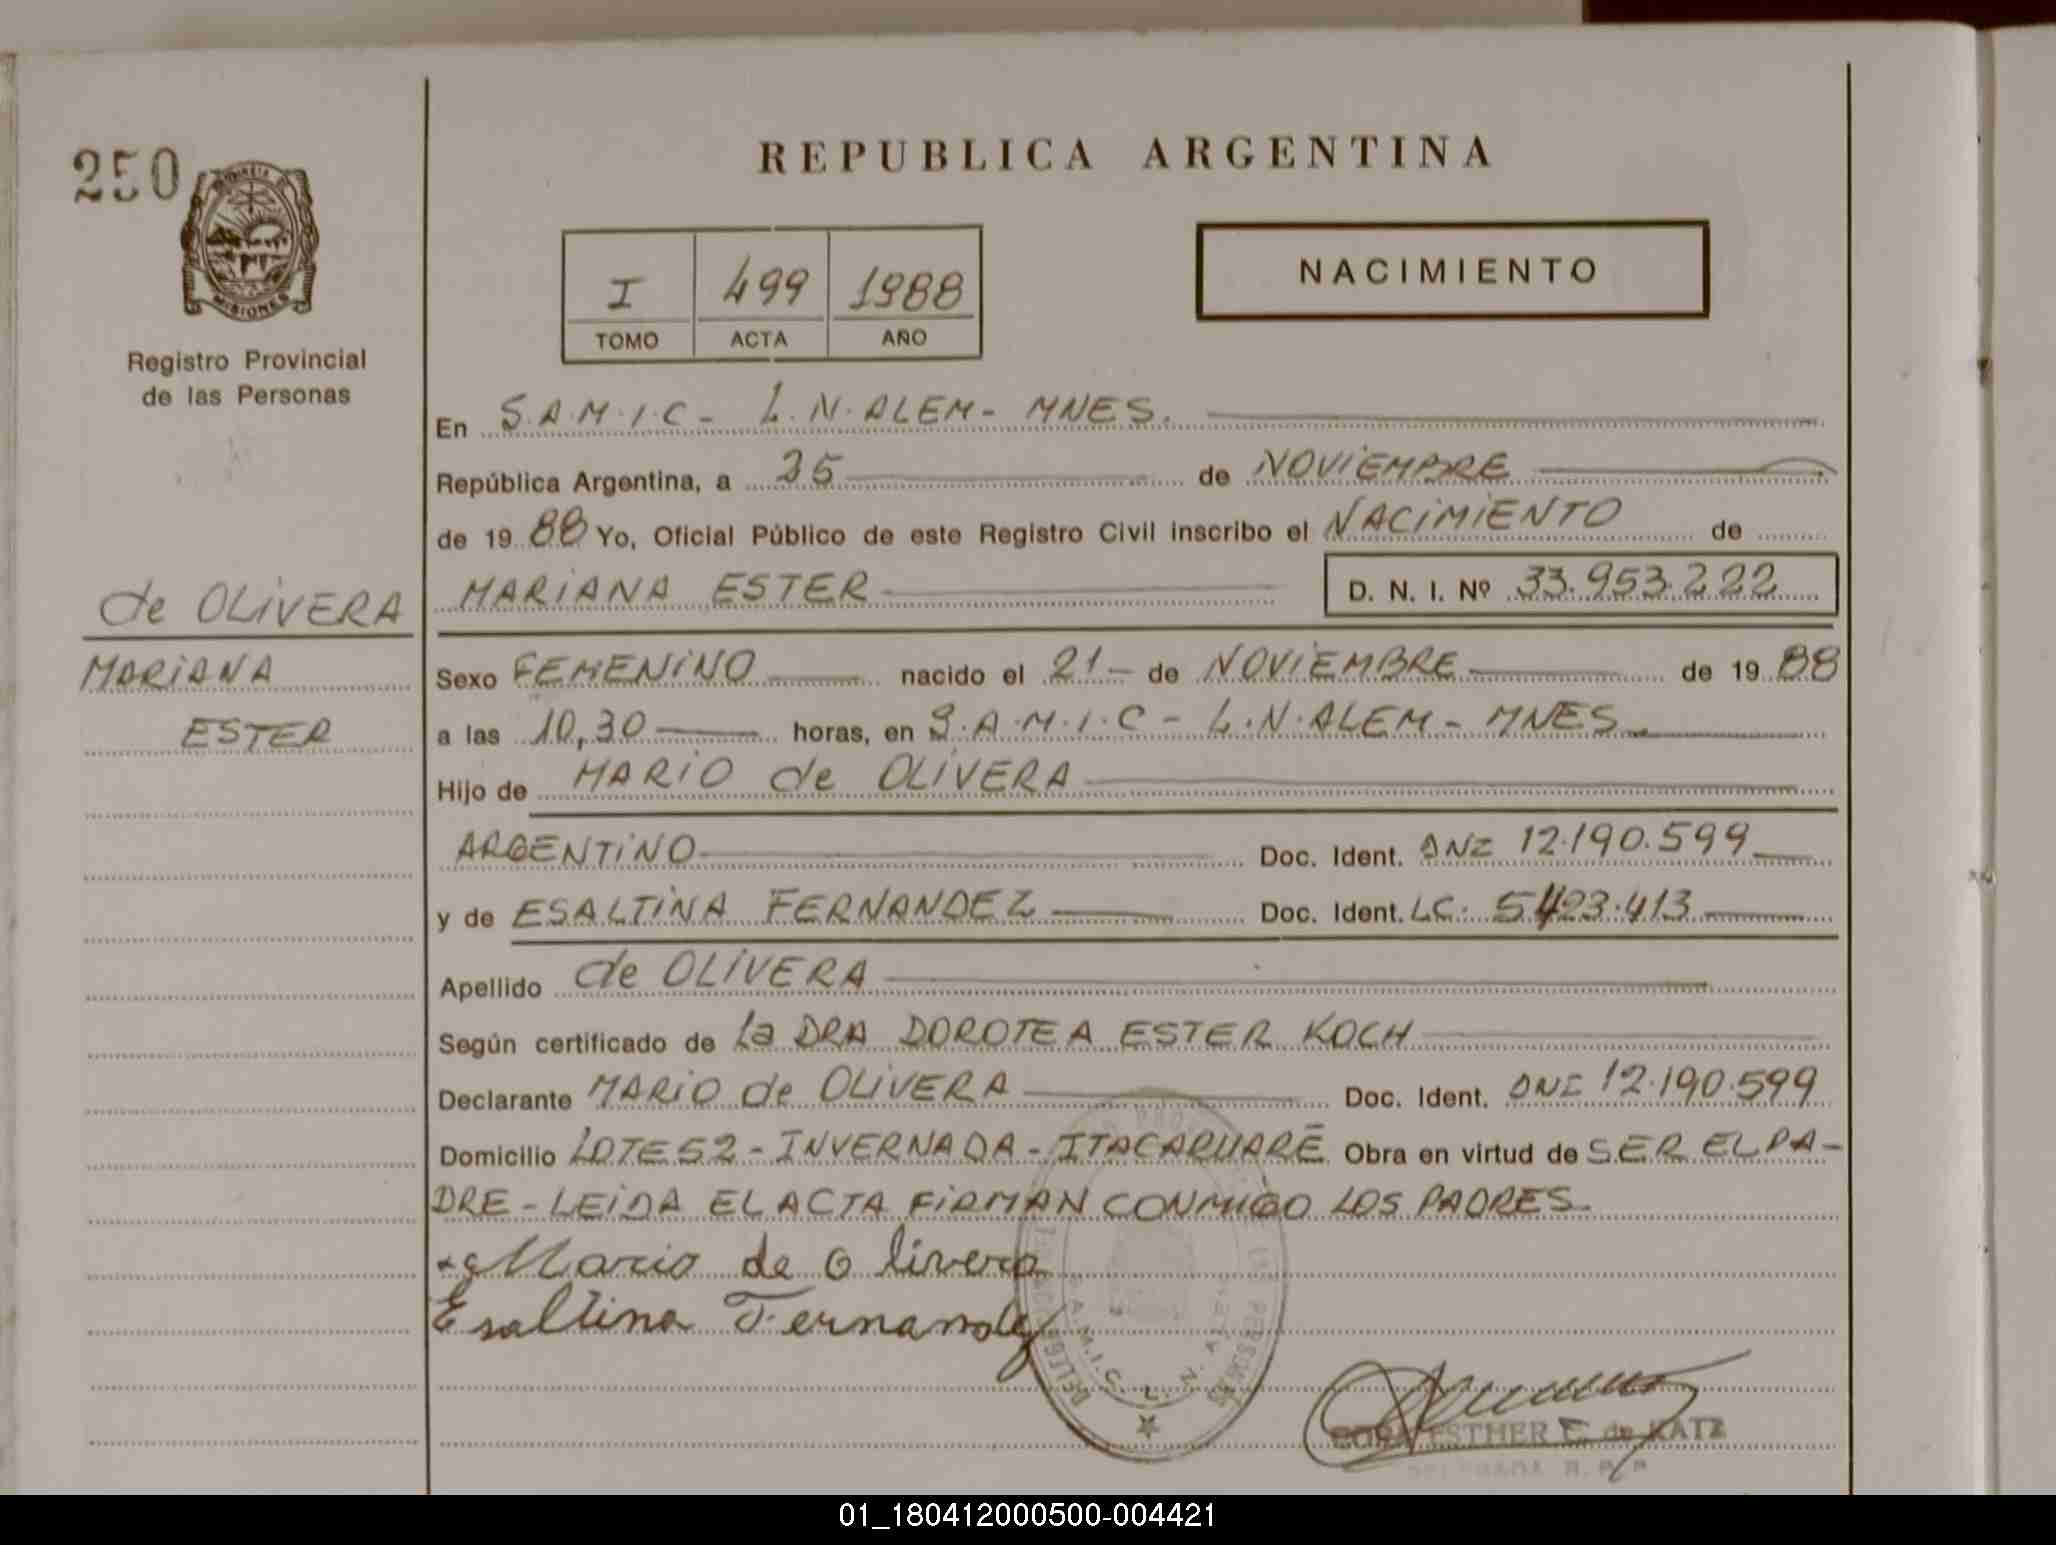 250
PROVINCIA DE
MISIONES
Registro Provincial
de las Personas
REPUBLICA ARGENTINA
I 499 1988
TOMO ACTA AÑO
NACIMIENTO
En S.A.M.I.C - L.N. ALEM - MNES.
República Argentina, a 25 de NOVIEMBRE
de 19 88 Yo, Oficial Público de este Registro Civil inscribo el NACIMIENTO de
MARIANA ESTER D. N. I. Nº 33.953.222
de OLIVERA
MARIANA
ESTER
Sexo FEMENINO nacido el 21 - de NOVIEMBRE de 19 88
a las 10,30 horas, en S.A.M.I.C - L.N. ALEM - MNES
Hijo de MARIO de OLIVERA
ARGENTINO Doc. Ident. DNI 12.190.599
y de ESALTINA FERNANDEZ Doc. Ident. LC. 5423.413
Apellido de OLIVERA
Según certificado de La DRA DOROTEA ESTER KOCH
Declarante MARIO de OLIVERA Doc. Ident. DNI 12.190.599
Domicilio LOTE 52 - INVERNADA - ITACARUARÉ Obra en virtud de SER EL PA-
DRE - LEIDA EL ACTA FIRMAN CONMIGO LOS PADRES.
Mario de Olivera
Esaltina Fernandez
S.A.M.I.C. L. N. A
ESTHER E. de KATZ
DELEGADA R. P. P.
01_180412000500-004421